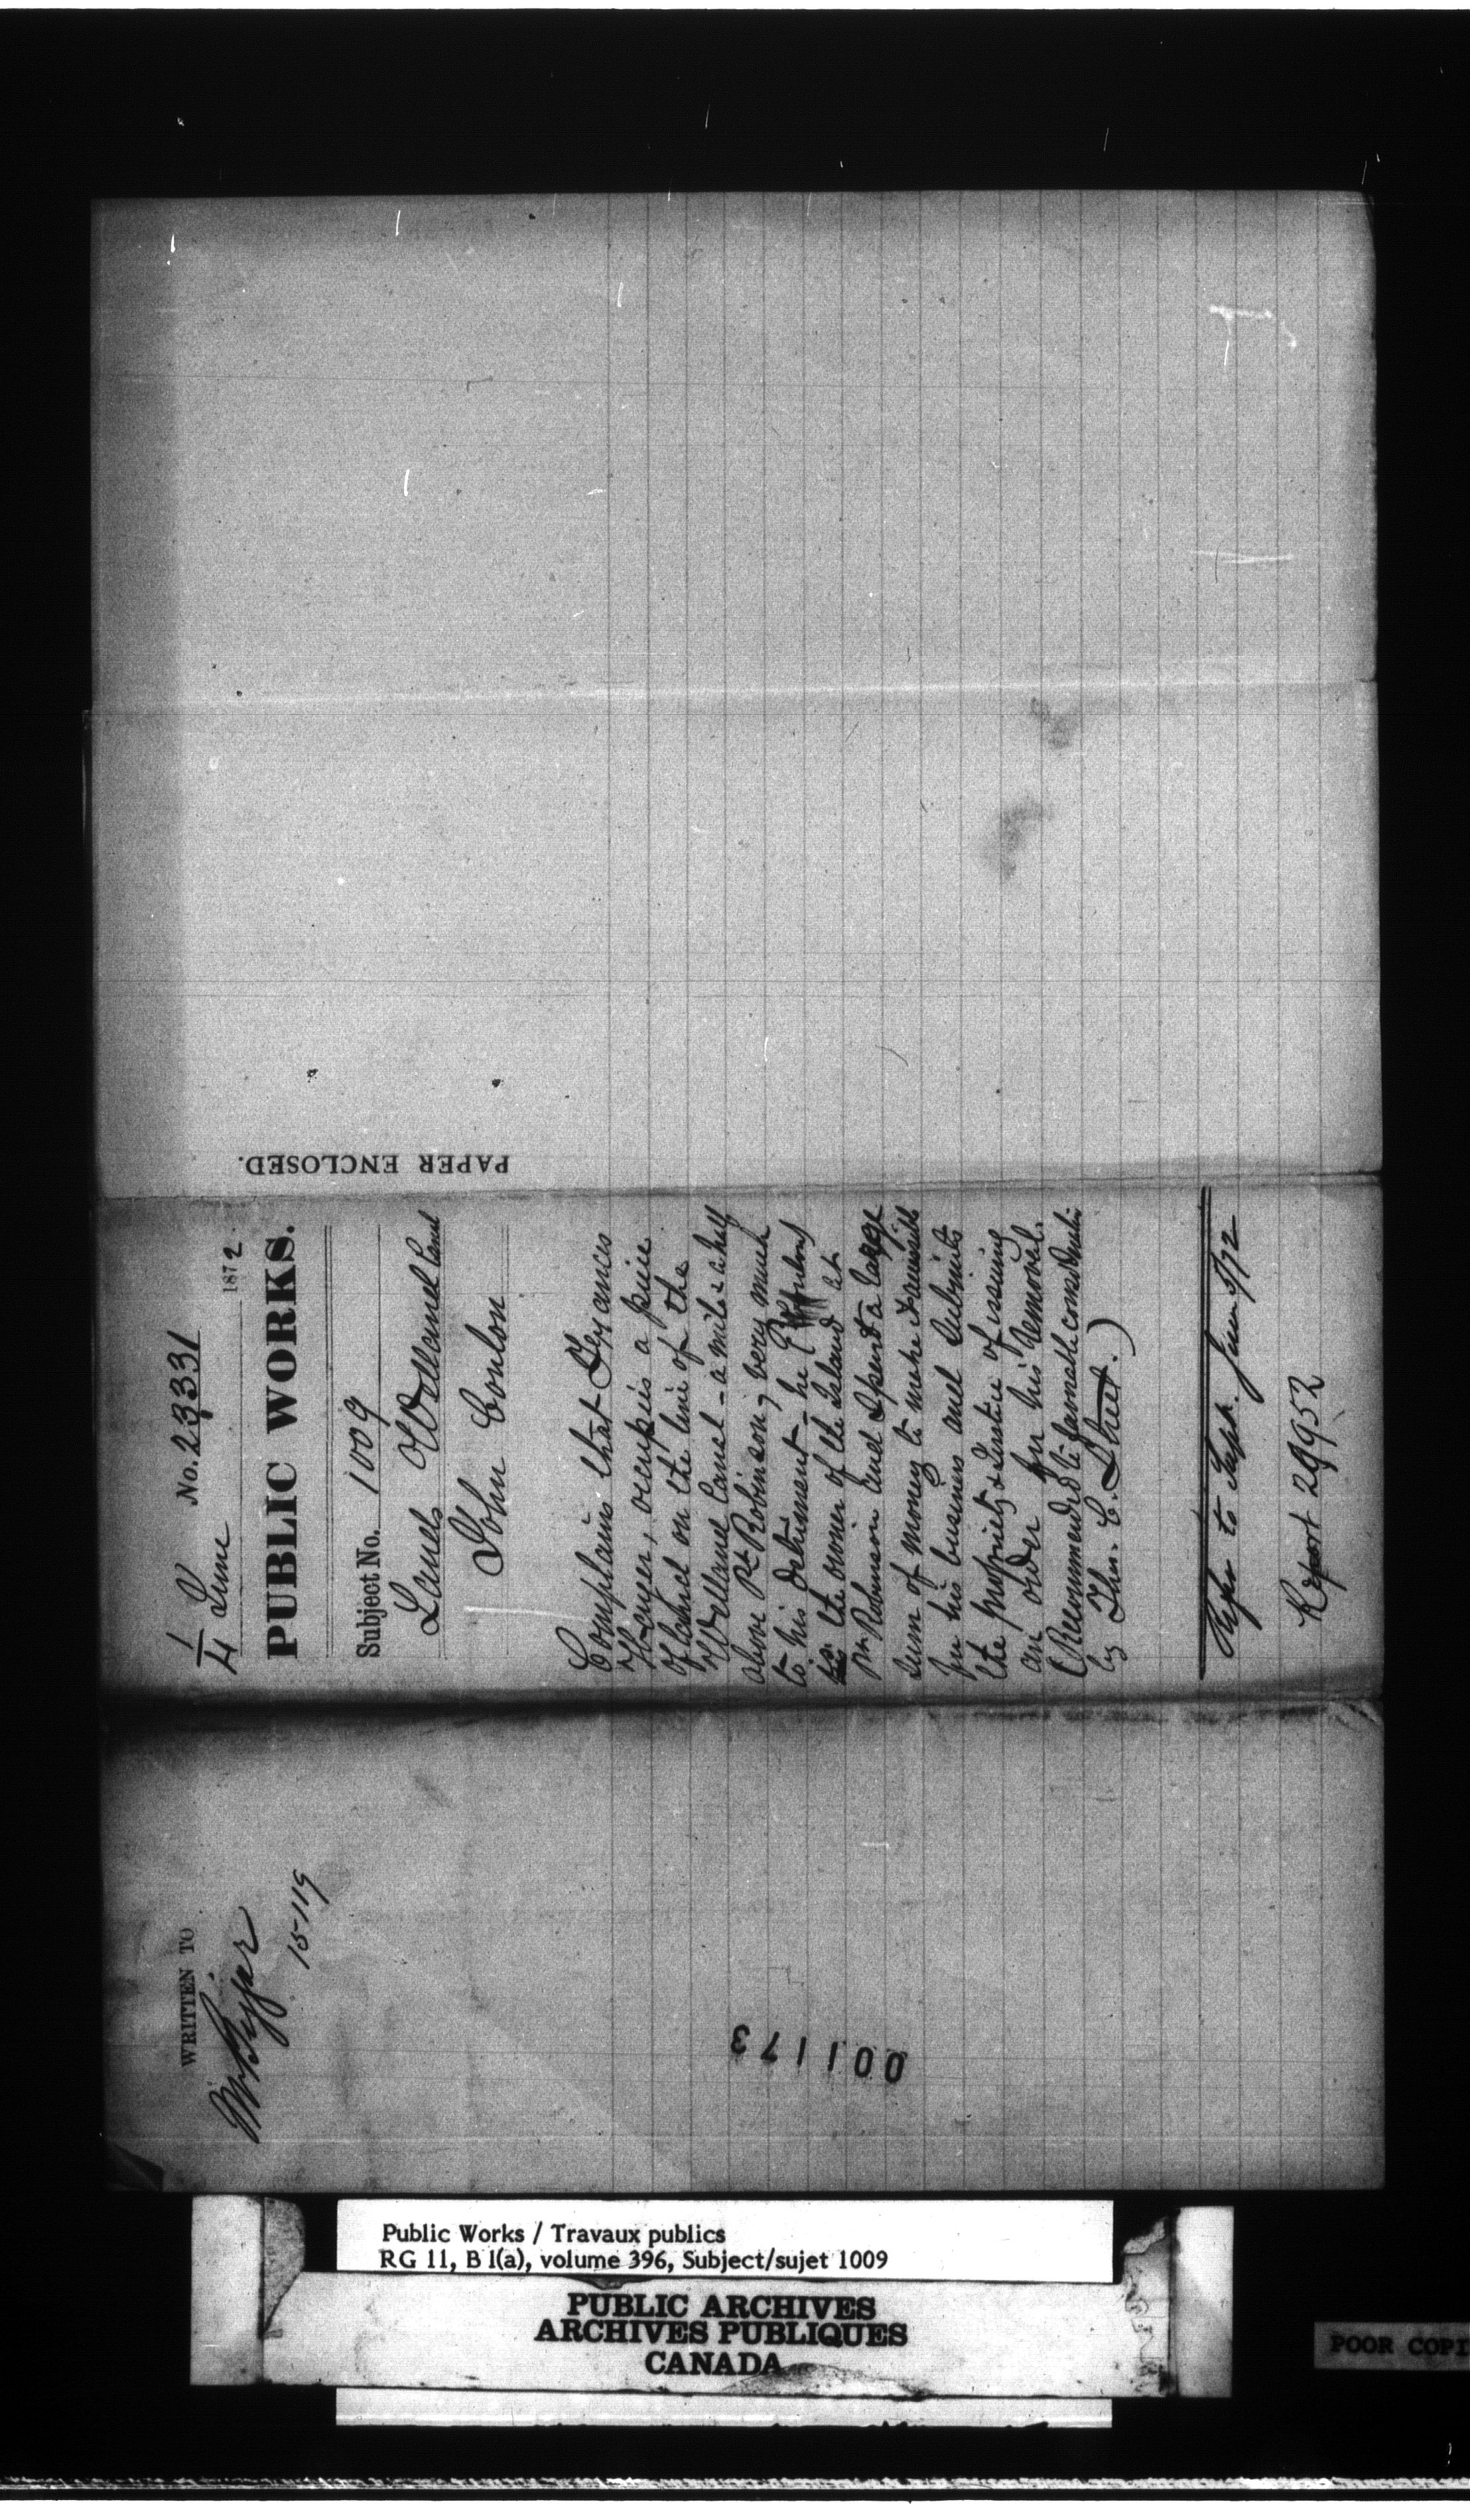 1/4 No. 23331
June 1872
PUBLIC WORKS.
Subject No. 1009
Lands Welland Canal
John Conlon
Complains that
occupies a piece
of land on the line of the
Welland Canal - a mile & a half
above Pt Robinson, very much
to his detriment - he
as the owner of the Island at
Pt Robinson and spent a large
sum of money to make it available
for his business and submits
the propriety & justice of issuing
an order for his removal.
(Recommended to favorable consideration
by Thos. C. Street.)
Refer to Supt. June 5/72
Report 29952
PAPER ENCLOSED.
WRITTEN TO
15-119
001173
Public Works / Travaux publics
RG 11, B 1(a), volume 396, Subject/sujet 1009
PUBLIC ARCHIVES
ARCHIVES PUBLIQUES
CANADA
POOR COPI